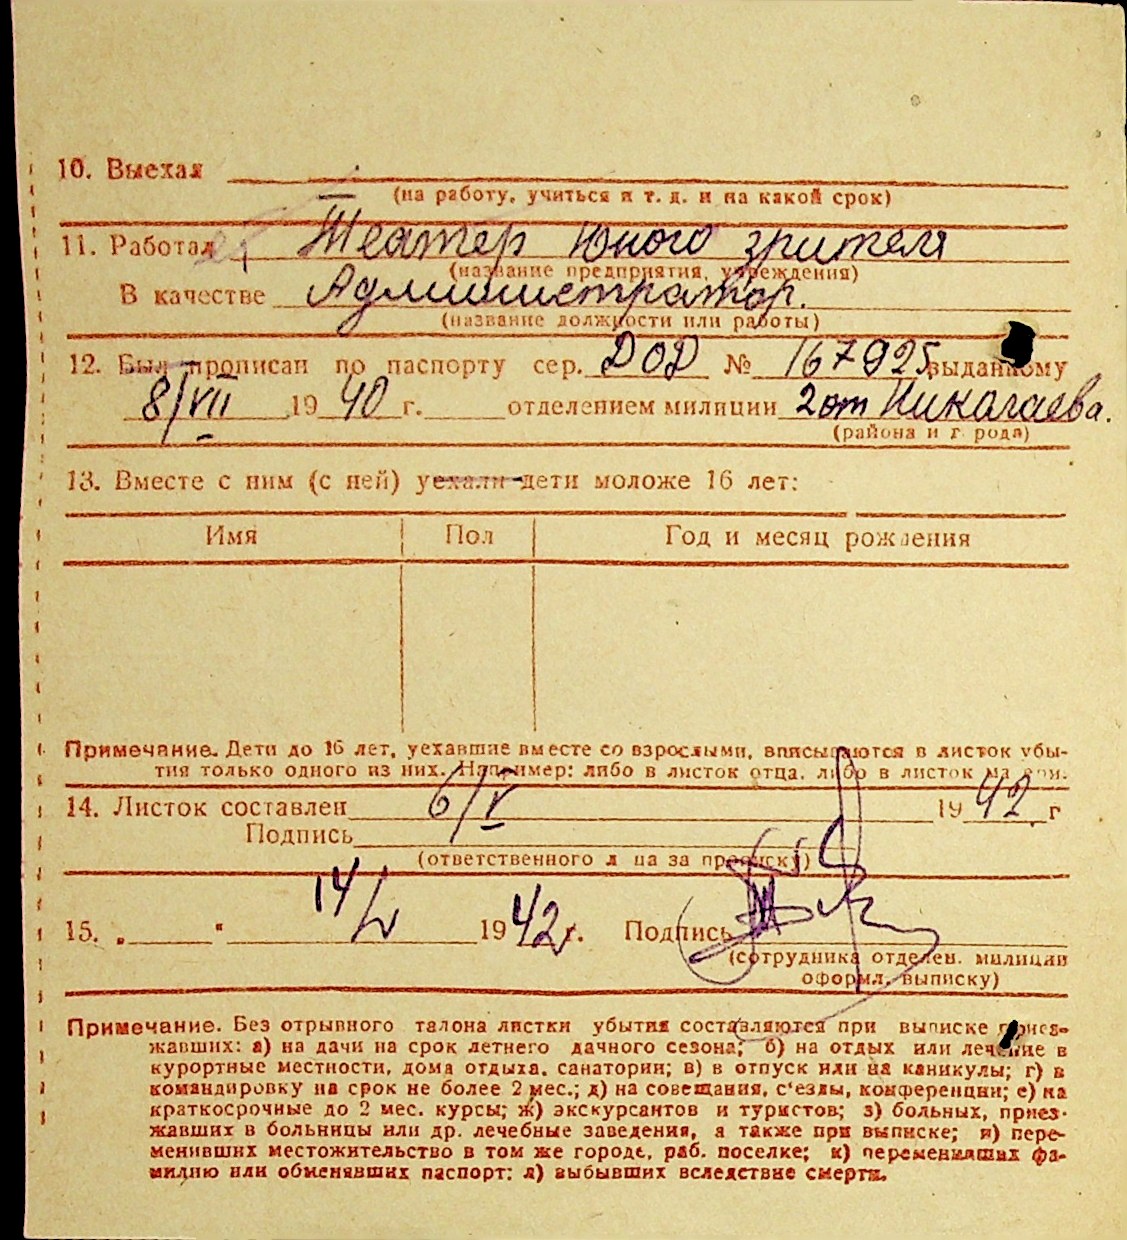 10. Выехал
(на работу, учиться и т. д. и на какой срок)
11. Работал Театер Юного зрителя
(название предприятия, учреждения)
В качестве Администратор.
(название должности или работы)
12. Был прописан по паспорту сер. ДОД № 167925 выданному
8/VII 1940 г. отделением милиции 2 от Николаева.
(района и города)
13. Вместе с ним (с ней) уехали дети моложе 16 лет:
Имя Пол Год и месяц рождения
Примечание. Дети до 16 лет, уехавшие вместе со взрослыми, вписываются в листок убы-
тия только одного из них. Например: либо в листок отца, либо в листок матери.
14. Листок составлен 6/V 1942 г
Подпись
(ответственного лица за прописку)
15. „ “ 14/V 1942 г. Подпись
(сотрудника отделен. милиции
оформл. выписку)
Примечание. Без отрывного талона листки убытия составляются при выписке приез-
жавших: а) на дачи на срок летнего дачного сезона; б) на отдых или лечение в
курортные местности, дома отдыха, санатории; в) в отпуск или на каникулы; г) в
командировку на срок не более 2 мес.; д) на совещания, с'езды, конференции; е) на
краткосрочные до 2 мес. курсы; ж) экскурсантов и туристов; з) больных, приез-
жавших в больницы или др. лечебные заведения, а также при выписке; и) пере-
менивших местожительство в том же городе, раб. поселке; к) переменивших фа-
милию или обменявших паспорт; л) выбывших вследствие смерти.